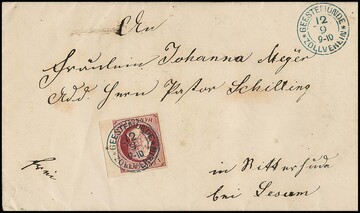 An
Fräulein Johanna Meyer
Add. Herrn Pastor Schilling
in Ritterhude
bei Lesum
frei
GEESTEMÜNDE
12
9
9-10
* ZOLLVEREIN *
GEESTEMÜNDE
12
9
9-10
ZOLLVEREIN